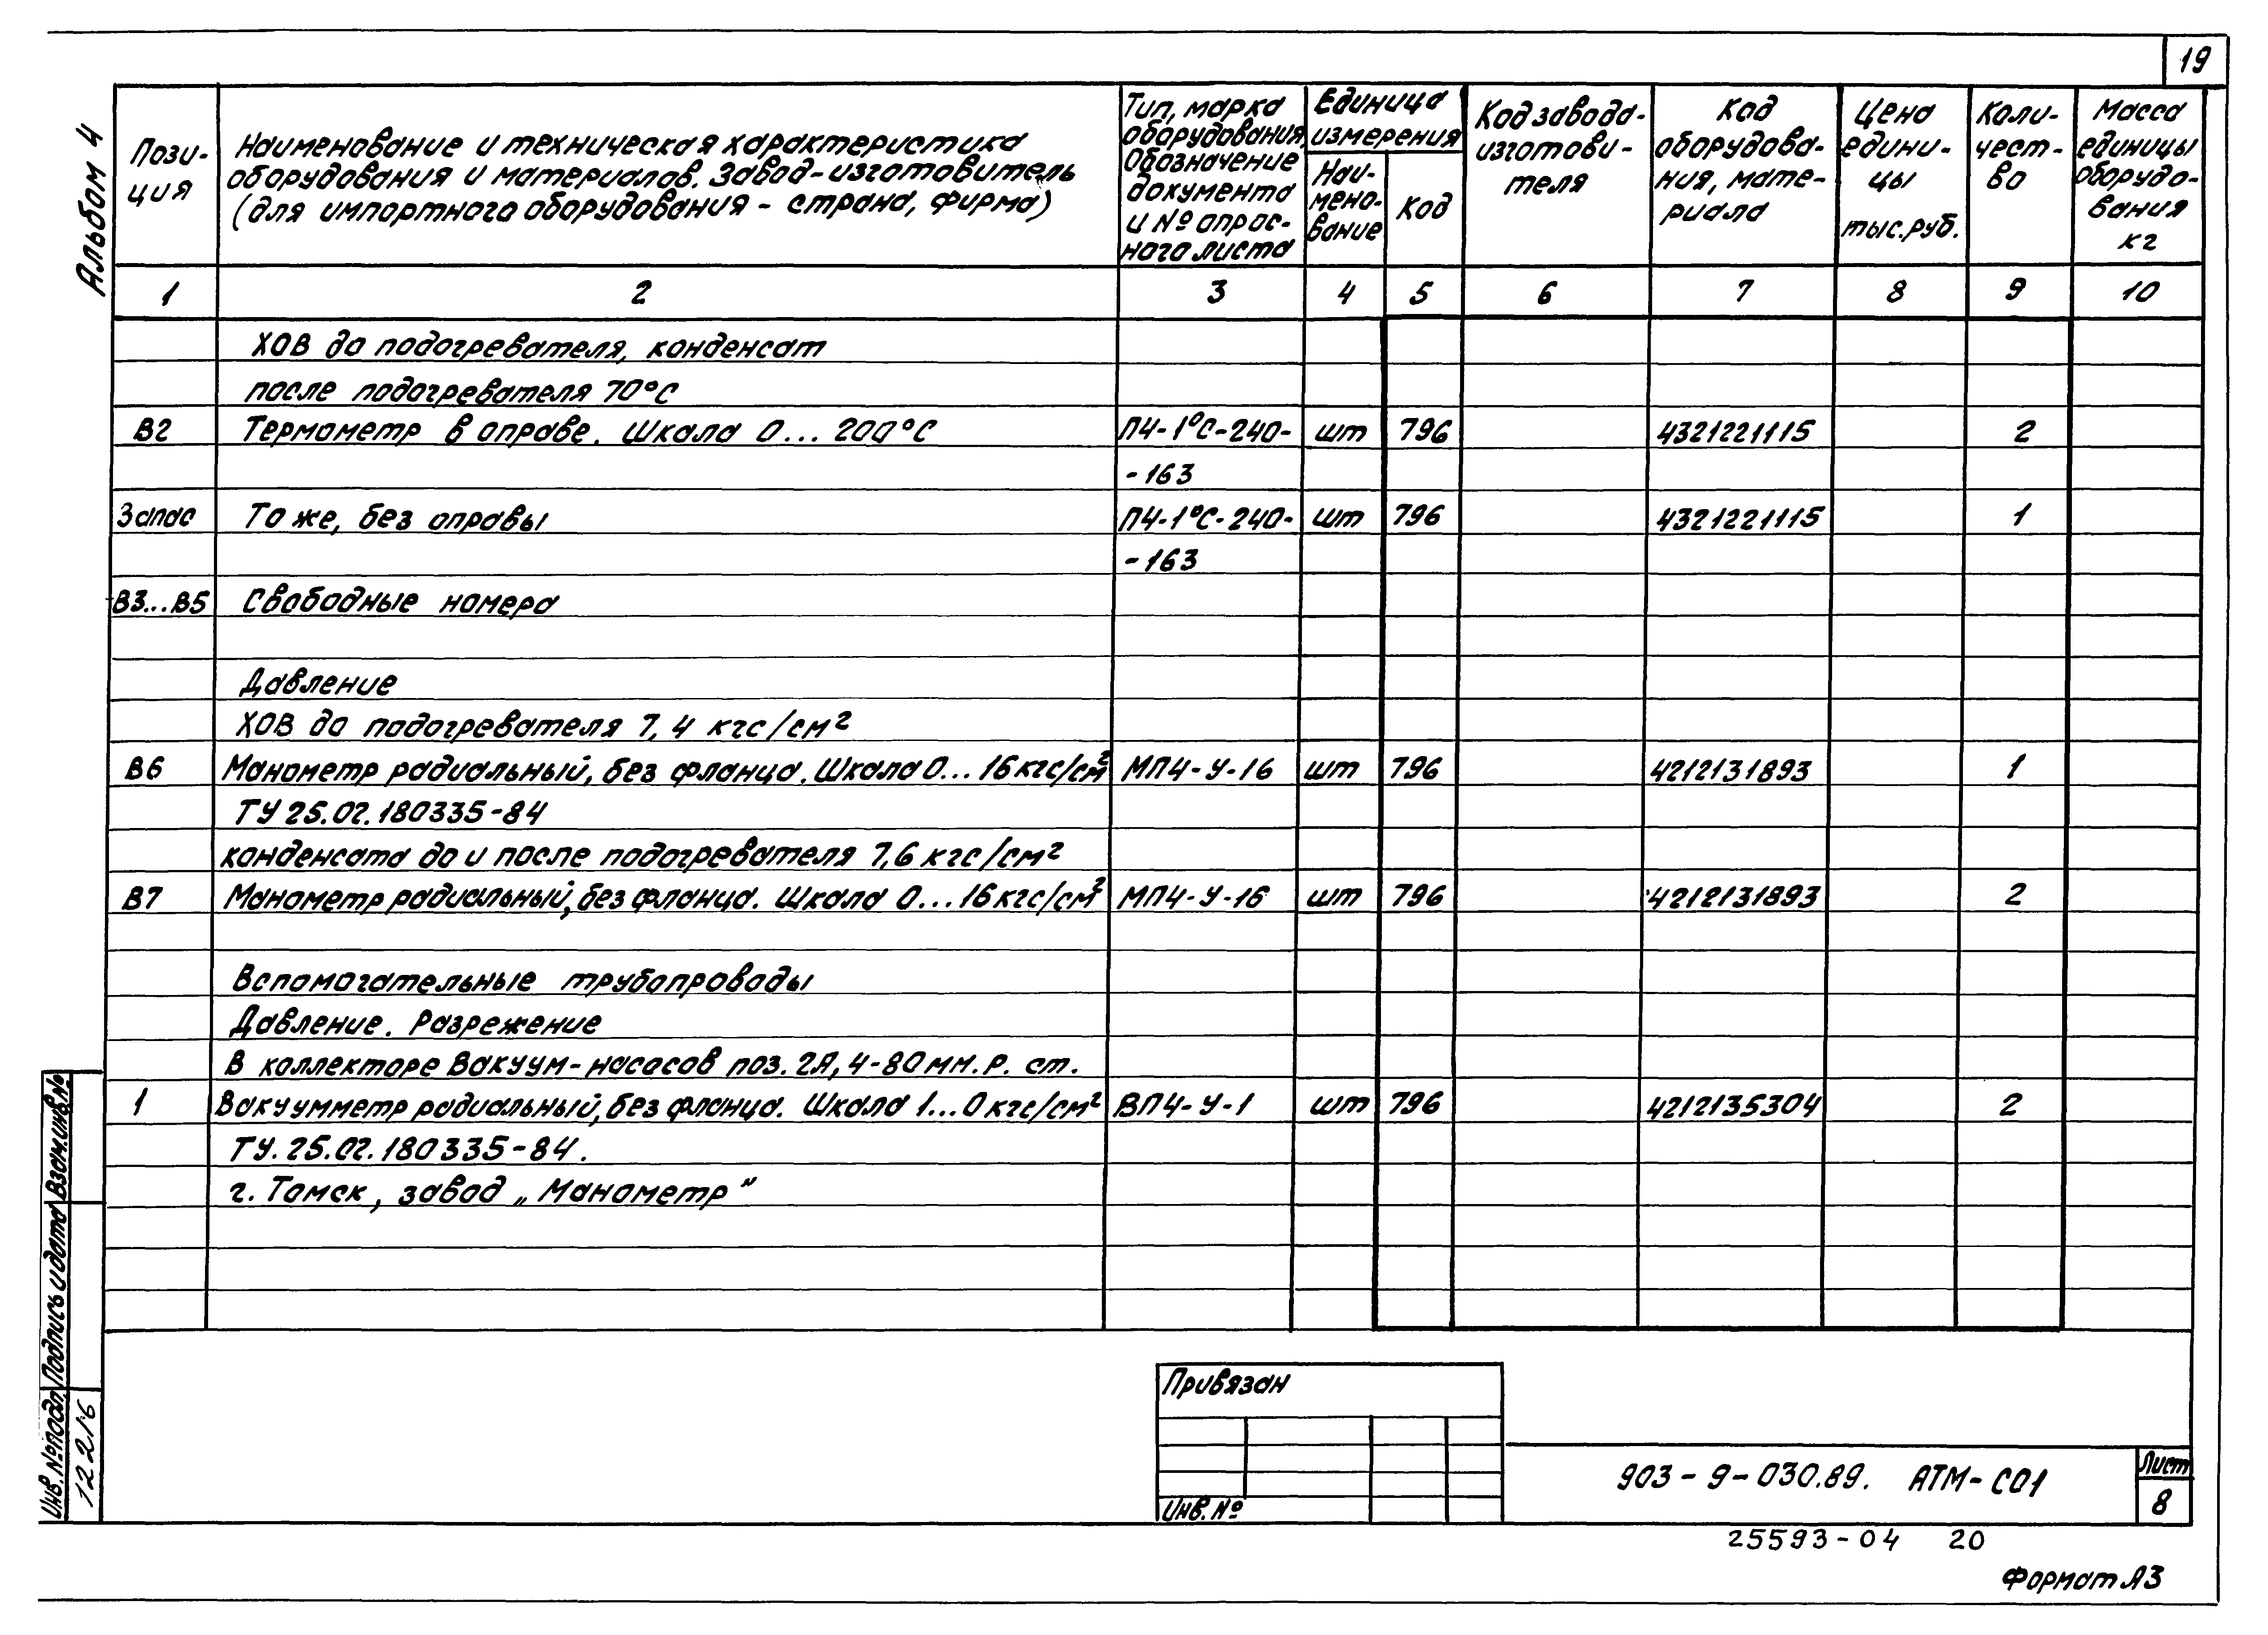 19
Альбом 4
Пози-
ция
Наименование и техническая характеристика
оборудования и материалов. Завод-изготовитель
(для импортного оборудования - страна, фирма)
Тип, марка
оборудования,
Обозначение
документа
и № опрос-
ного листа
Единица
измерения
Наи-
мено-
вание
Код
Код завода-
изготови-
теля
Код
оборудова-
ния, мате-
риала
Цена
едини-
цы
тыс.руб.
Коли-
чест-
во
Масса
единицы
оборудо-
вания
кг
1 2 3 4 5 6 7 8 9 10
ХОВ до подогревателя, конденсат
после подогревателя 70°С
В2 Термометр в оправе. Шкала 0... 200°С П4-1°С-240- шт 796 4321221115 2
-163
Запас То же, без оправы П4-1°С-240- шт 796 4321221115 1
-163
В3...В5 Свободные номера
Давление
ХОВ до подогревателя 7,4 кгс/см²
В6 Манометр радиальный, без фланца. Шкала 0... 16 кгс/см² МП4-У-16 шт 796 4212131893 1
ТУ 25.02.180335-84
конденсата до и после подогревателя 7,6 кгс/см²
В7 Манометр радиальный, без фланца. Шкала 0...16 кгс/см² МП4-У-16 шт 796 4212131893 2
Вспомогательные трубопроводы
Давление. Разрежение
В коллекторе вакуум-насосов поз. 2А, 4-80 мм. р. ст.
1 Вакуумметр радиальный, без фланца. Шкала 1...0 кгс/см² ВП4-У-1 шт 796 4212135304 2
ТУ. 25.02.180335-84.
г. Томск, завод „Манометр"
Взам.инв.№
Подпись и дата
Инв.№подл.
12216
Привязан
Инв. №
903-9-030.89. АТМ-СО1
Лист
8
25593-04 20
Формат А3